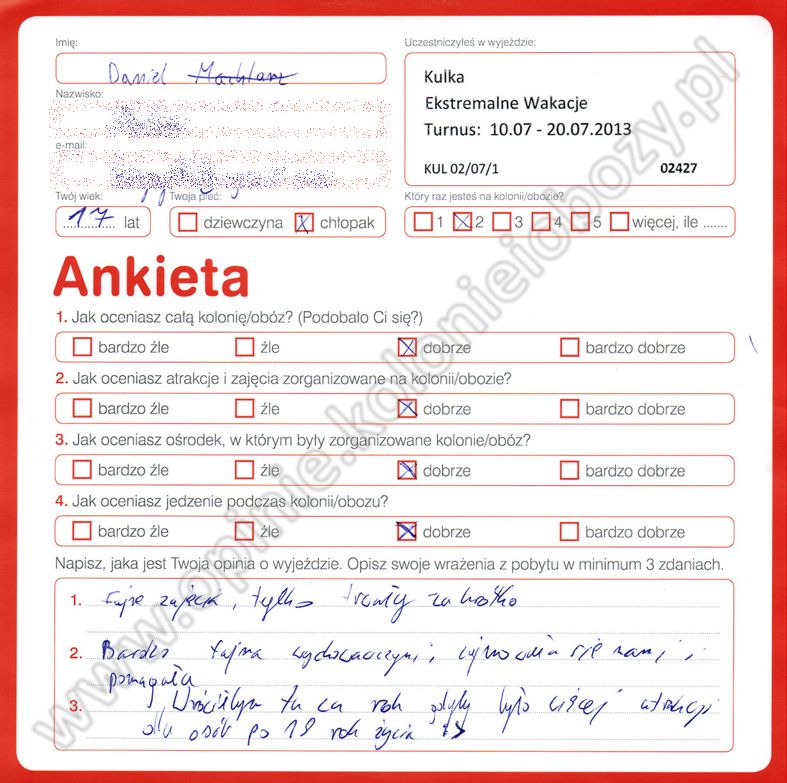 Imię:
Uczestniczyłeś w wyjeździe:
Daniel
Kulka
Ekstremalne Wakacje
Turnus: 10.07 - 20.07.2013
KUL 02/07/1 02427
Nazwisko:
e-mail:
Twój wiek: Twoja płeć: Który raz jesteś na kolonii/obozie?
17 lat dziewczyna chłopak 1 2 3 4 5 więcej, ile .......
Ankieta
1. Jak oceniasz całą kolonię/obóz? (Podobało Ci się?)
bardzo źle źle dobrze bardzo dobrze
2. Jak oceniasz atrakcje i zajęcia zorganizowane na kolonii/obozie?
bardzo źle źle dobrze bardzo dobrze
3. Jak oceniasz ośrodek, w którym były zorganizowane kolonie/obóz?
bardzo źle źle dobrze bardzo dobrze
4. Jak oceniasz jedzenie podczas kolonii/obozu?
bardzo źle źle dobrze bardzo dobrze
Napisz, jaka jest Twoja opinia o wyjeździe. Opisz swoje wrażenia z pobytu w minimum 3 zdaniach.
1. Fajne zajęcia, tylko trwały za krótko
2. Bardzo fajna wychowawczyni, zajmowała się nami i
pomagała
3. Wróciłbym tu za rok gdyby było więcej atrakcji
dla osób po 18 rok życia
www.opinie.kolonieiobozy.pl